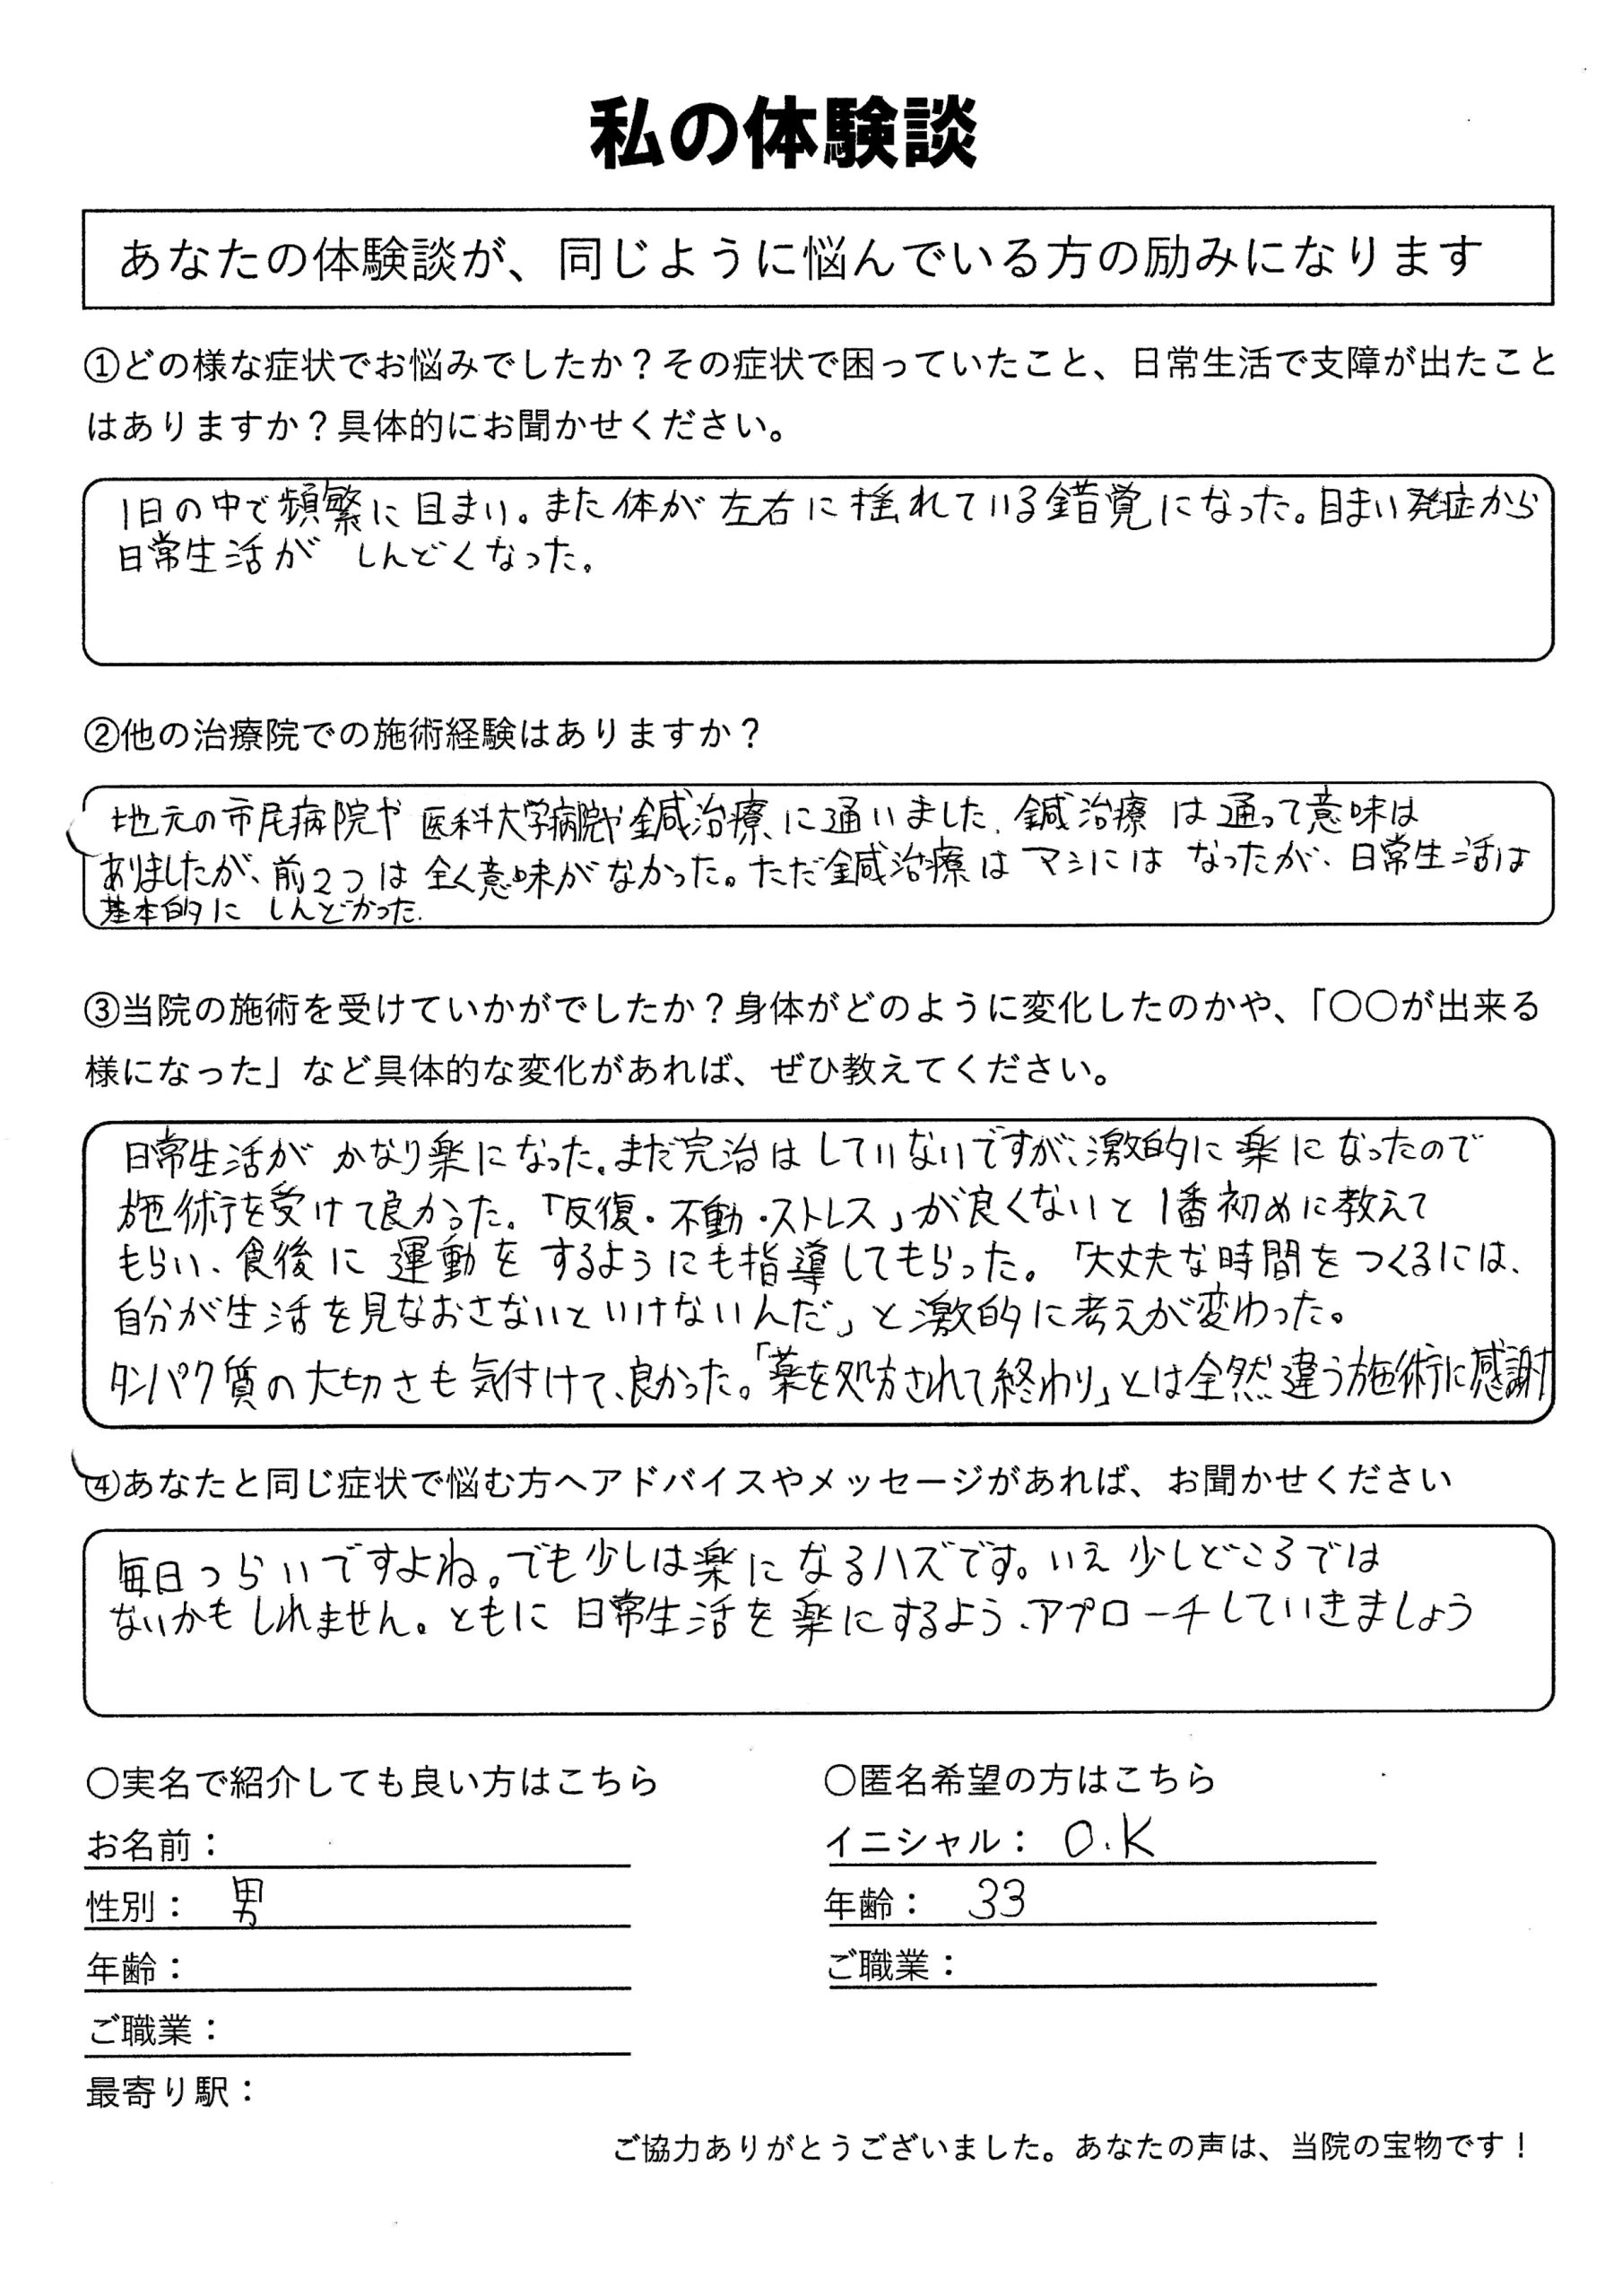 私の体験談
あなたの体験談が、同じように悩んでいる方の励みになります
①どの様な症状でお悩みでしたか？その症状で困っていたこと、日常生活で支障が出たこと
はありますか？具体的にお聞かせください。
1日の中で頻繁に目まい。また体が左右に揺れている錯覚になった。目まい発症から
日常生活が しんどくなった。
②他の治療院での施術経験はありますか？
地元の市民病院や医科大学病院や鍼治療に通いました。鍼治療は通って意味は
ありましたが、前2つは全く意味がなかった。ただ鍼治療はマシにはなったが、日常生活は
基本的に しんどかった。
③当院の施術を受けていかがでしたか？身体がどのように変化したのかや、「〇〇が出来る
様になった」など具体的な変化があれば、ぜひ教えてください。
日常生活が かなり楽になった。まだ完治はしていないですが、激的に楽になったので
施術を受けて良かった。「反復・不動・ストレス」が良くないと1番初めに教えて
もらい、食後に運動をするようにも指導してもらった。「大丈夫な時間をつくるには、
自分が生活を見なおさないといけないんだ」と激的に考えが変わった。
タンパク質の大切さも気付けて、良かった。「薬を処方されて終わり」とは全然違う施術に感謝
④あなたと同じ症状で悩む方へアドバイスやメッセージがあれば、お聞かせください
毎日つらいですよね。でも少しは楽になるハズです。いえ少しどころでは
ないかもしれません。ともに日常生活を楽にするよう、アプローチしていきましょう
〇実名で紹介しても良い方はこちら
〇匿名希望の方はこちら
お名前：
イニシャル： O.K
性別： 男
年齢： 33
年齢：
ご職業：
ご職業：
最寄り駅：
ご協力ありがとうございました。あなたの声は、当院の宝物です！